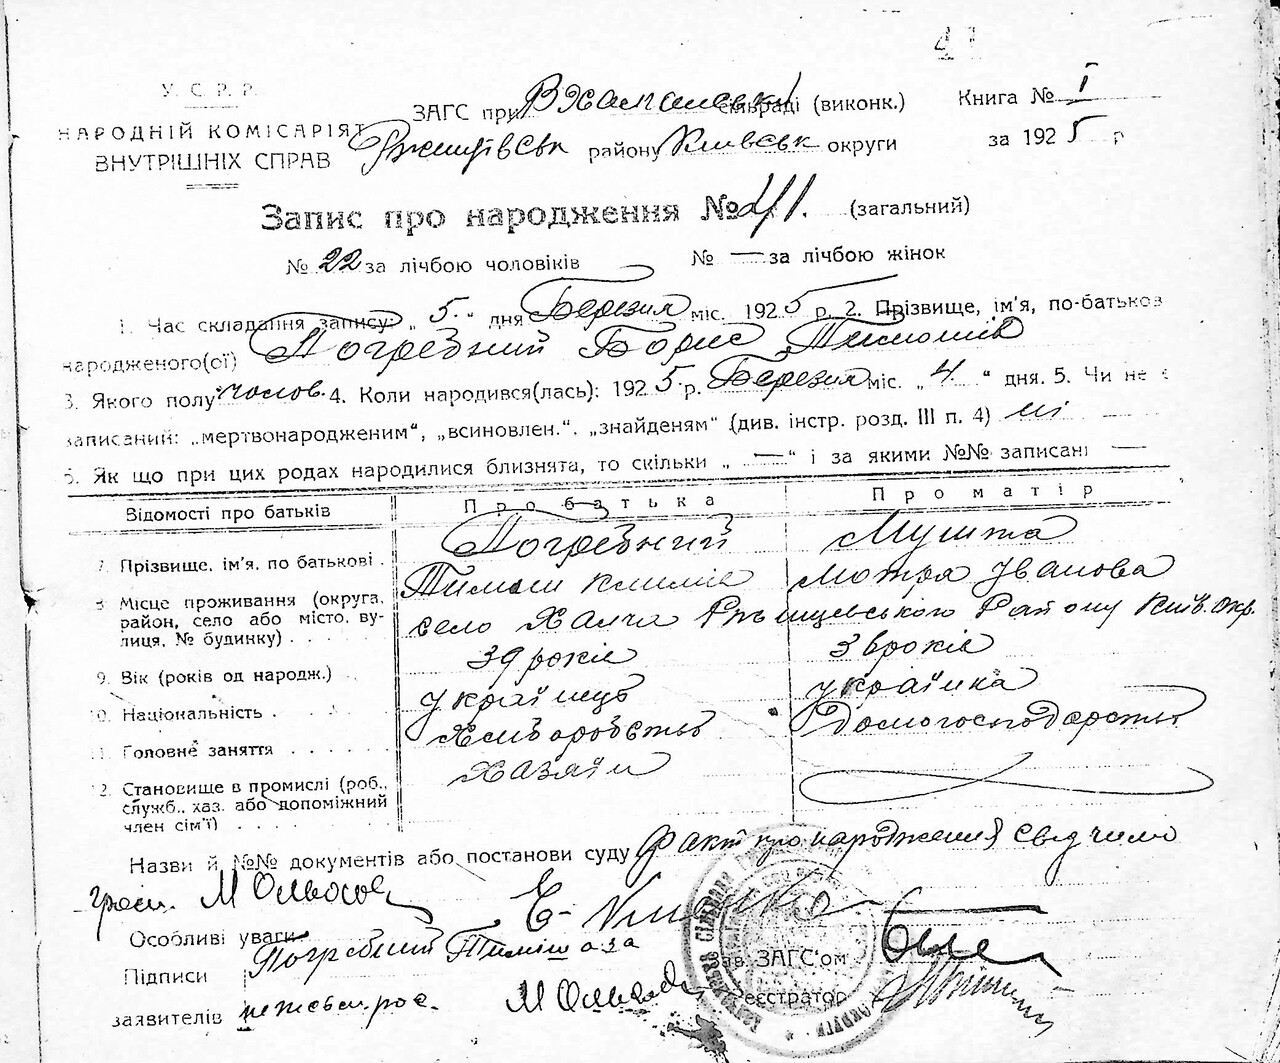 У. С. Р. Р.
НАРОДНІЙ КОМІСАРІЯТ
ВНУТРІШНІХ СПРАВ
ЗАГС при сільраді (виконк.)
району Київськ округи
Книга № I
за 1925 р
Запис про народження № 41. (загальний)
№ 22 за лічбою чоловіків № — за лічбою жінок
1. Час складання запису: „ 5. “ дня Березня міс. 1925 р. 2. Прізвище, ім'я, по-батьков
народженого(ої) Погребний Борис Тимошів
3. Якого полу чолов. 4. Коли народився(лась): 1925 р. Березня міс. „ 4 “ дня. 5. Чи не є
записаний: „мертвонародженим“, „всиновлен.“, „знайденям“ (див. інстр. розд. III п. 4) ні
6. Як що при цих родах народилися близнята, то скільки „ — “ і за якими №№ записані —
Відомості про батьків Про батька Про матір
7. Прізвище, ім'я, по батькові . Погребний Мушта
Тимош Климів Мотря Іванова
8. Місце проживання (округа, район, село або місто, вулиця, № будинку) . . . село Халча Ржищевського Району Київ. окр.
9. Вік (років од народж.) . . 39 років років
10. Національність . . . . українець українка
11. Головне заняття . . . . . . Хліборобство Домогосподарство
12. Становище в промислі (роб., служб., хаз. або допоміжний член сім'ї) . . . . Хазяїн
Назви й №№ документів або постанови суду факт про народження свідчимо
М
Особливі уваги
Підписи Погребний Тиміш а за
заявителів М
Зав. ЗАГС'ом
Реєстратор